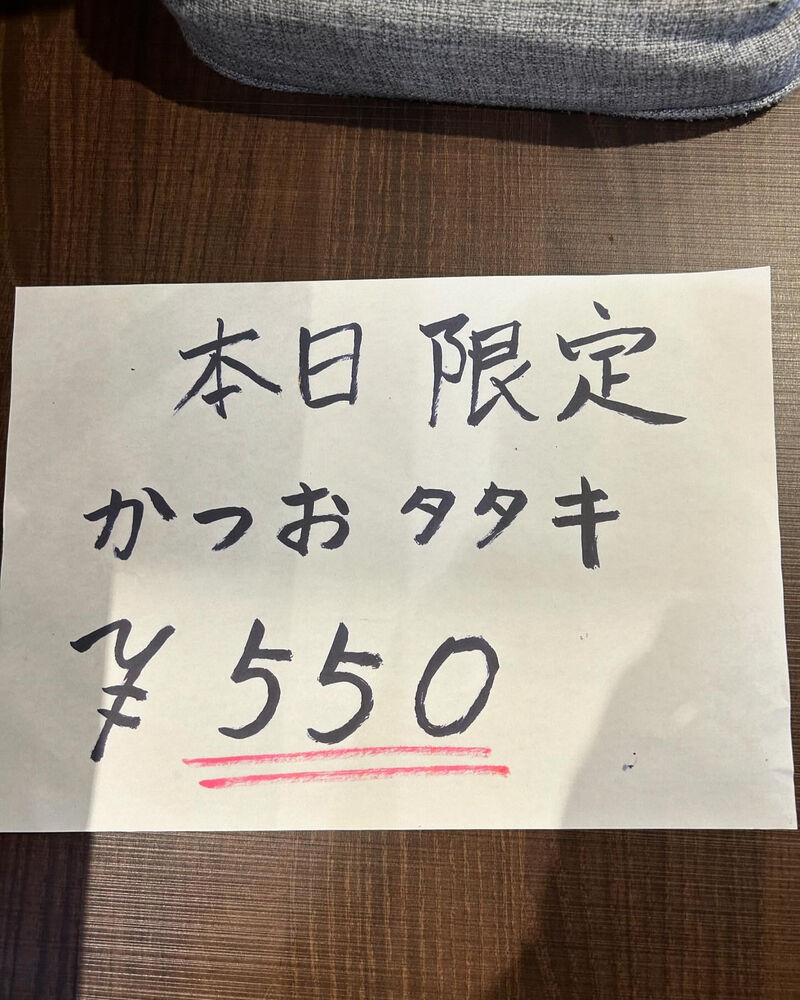 本日限定
かつおタタキ
¥550